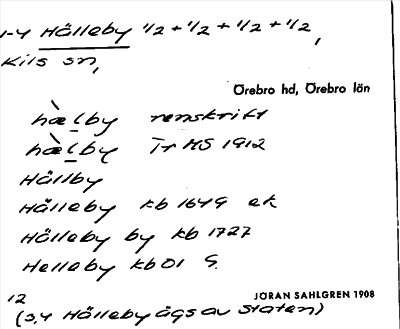 1-4 Hälleby 1/2 + 1/2 + 1/2 + 1/2,
Kils sn,
Örebro hd, Örebro län
hæ̀lby renskrift
hæ̀lby Tr MS 1912
Hällby
Hälleby kb 1649 ek
Hälleby by kb 1727
Helleby kb 01 G.
12
JÖRAN SAHLGREN 1908
(3,4 Hälleby ägs av staten)